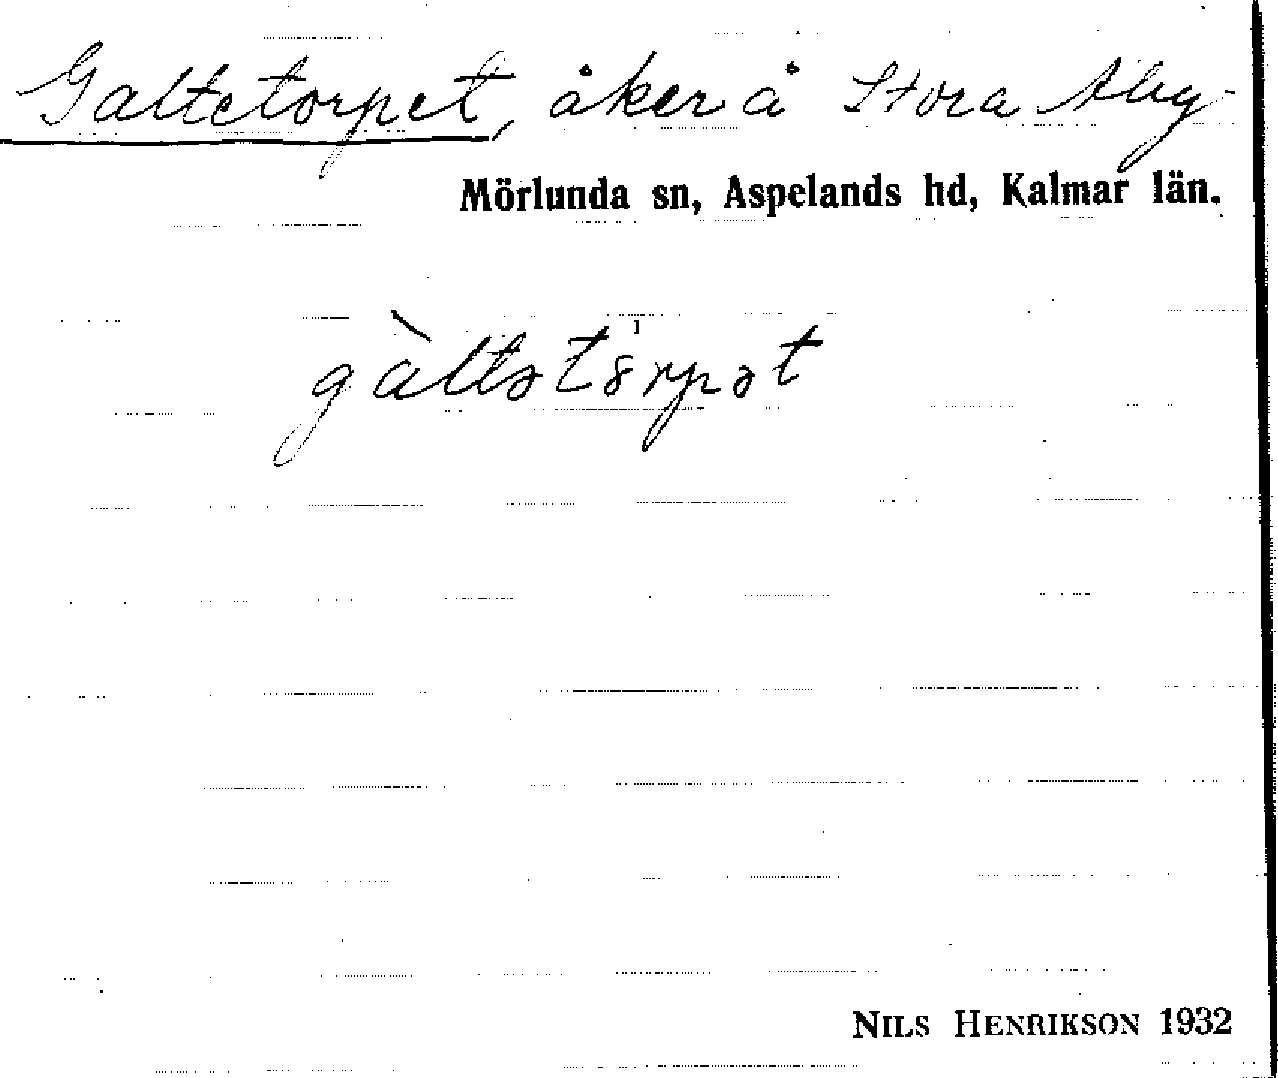 Galtetorpet, åker å Stora Åby
Mörlunda sn, Aspelands hd, Kalmar län.
gàltətȣrpət
NILS HENRIKSON 1932